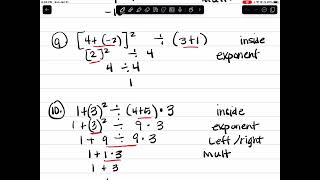 mult
9. [4+(-2)]² ÷ (3+1) inside
[2]² ÷ 4 exponent
4 ÷ 4
1
10. 1+(3)² ÷ (4+5) · 3 inside
1+(3)² ÷ 9 · 3 exponent
1 + 9 ÷ 9 · 3 Left/right
1 + 1 · 3 Mult
1 + 3